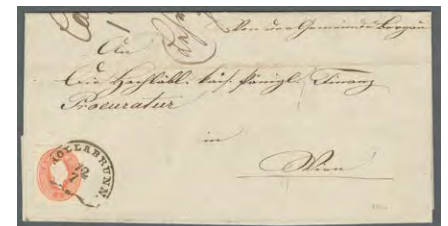 Von der Gemeinde Bergau
An
die Hochlöbl. kais. königl. Finanz
Procuratur
in
Wien
HOLLABRUNN
12
7